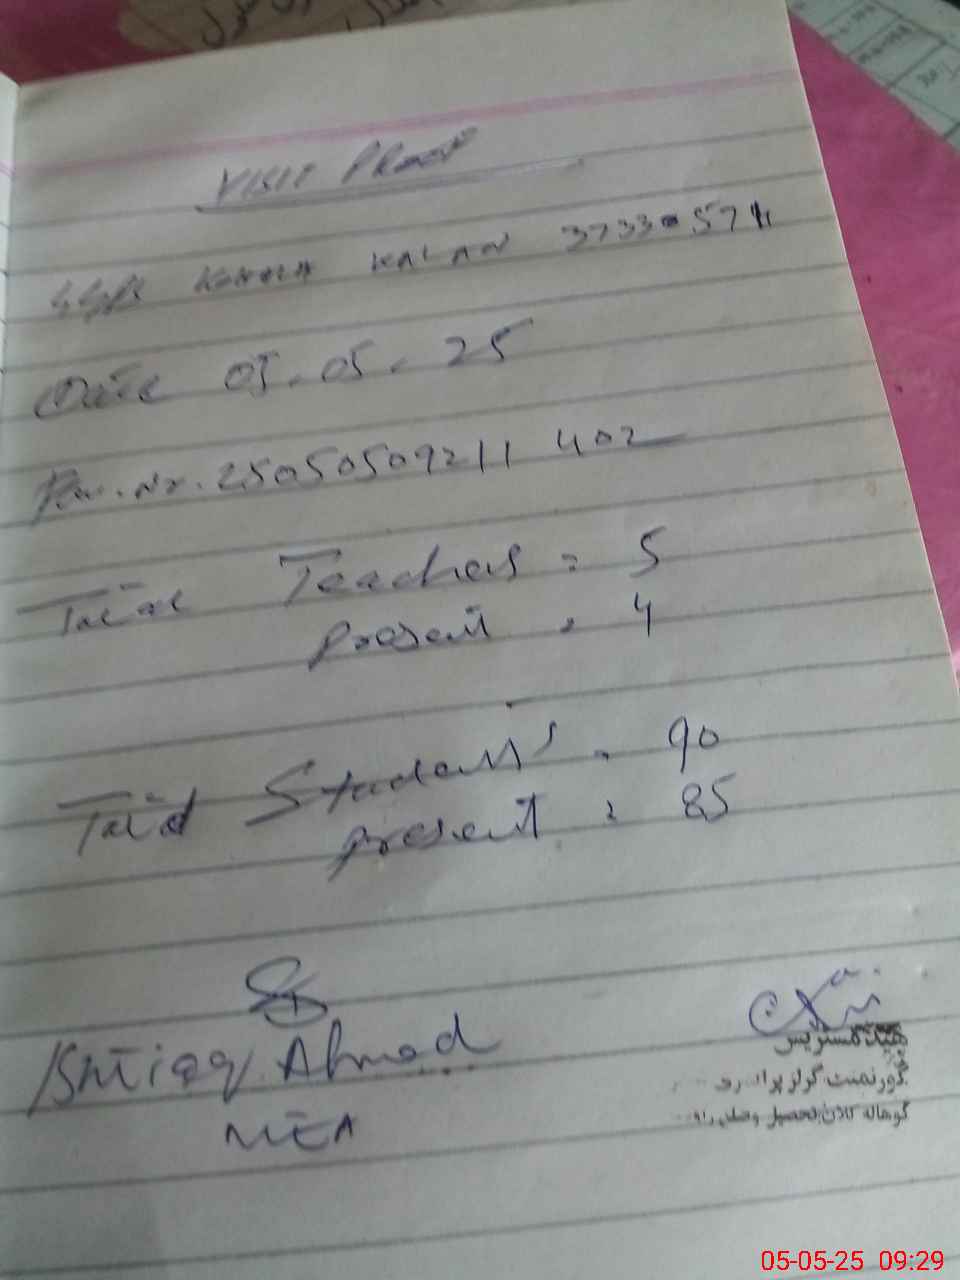 VISIT PROOF
GGPS KOHALA KALAN 37330571
Date 05.05.25
25050509211 402
Total Teachers = 5
present = 4
Total Students = 90
present = 85
Ishtiaq Ahmad
MEA
ہیڈ مسٹریس
گورنمنٹ گرلز پرائمری
گوهاله کلاں تحصیل و ضلع
05-05-25 09:29